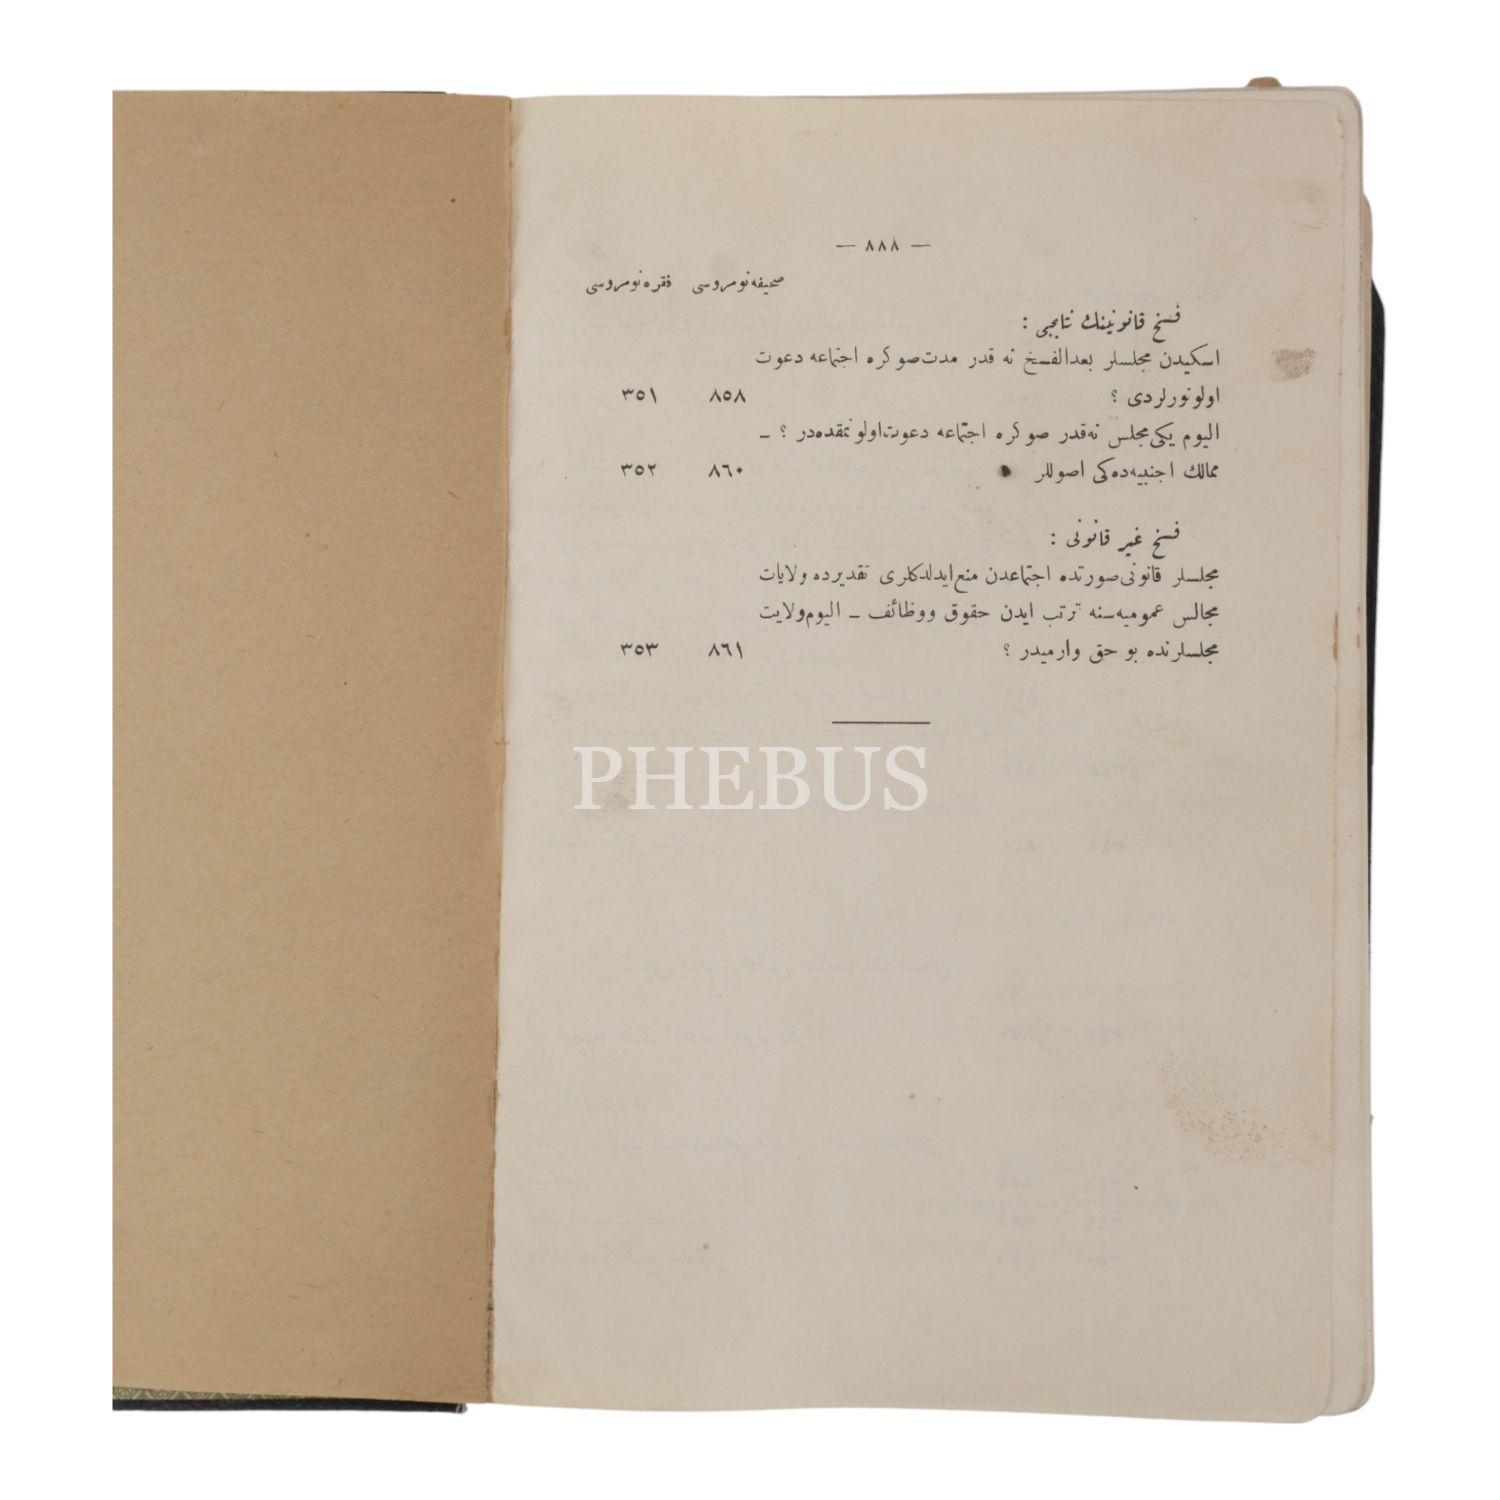 — ٨٨٨ —
صحیفه نومروسی فقره نومروسی
فسخ قانونینك نتایجی :
اسکیدن مجلسلر بعدالفسخ نه قدر مدت صوکره اجتماعه دعوت
اولونورلردی ؟ ٨٥٨ ٣٥١
الیوم یکی مجلس نه قدر صوکره اجتماعه دعوت اولونمقده در ؟ ـ
ممالك اجنبیه ده کی اصوللر ٨٦٠ ٣٥٢
فسخ غیر قانونی :
مجلسلر قانونی صورتده اجتماعدن منع ایدلدکلری تقدیرده ولایات
مجالس عمومیه سنه ترتب ایدن حقوق ووظائف ـ الیوم ولایت
مجلسلرنده بو حق وارمیدر ؟ ٨٦١ ٣٥٣
PHEBUS